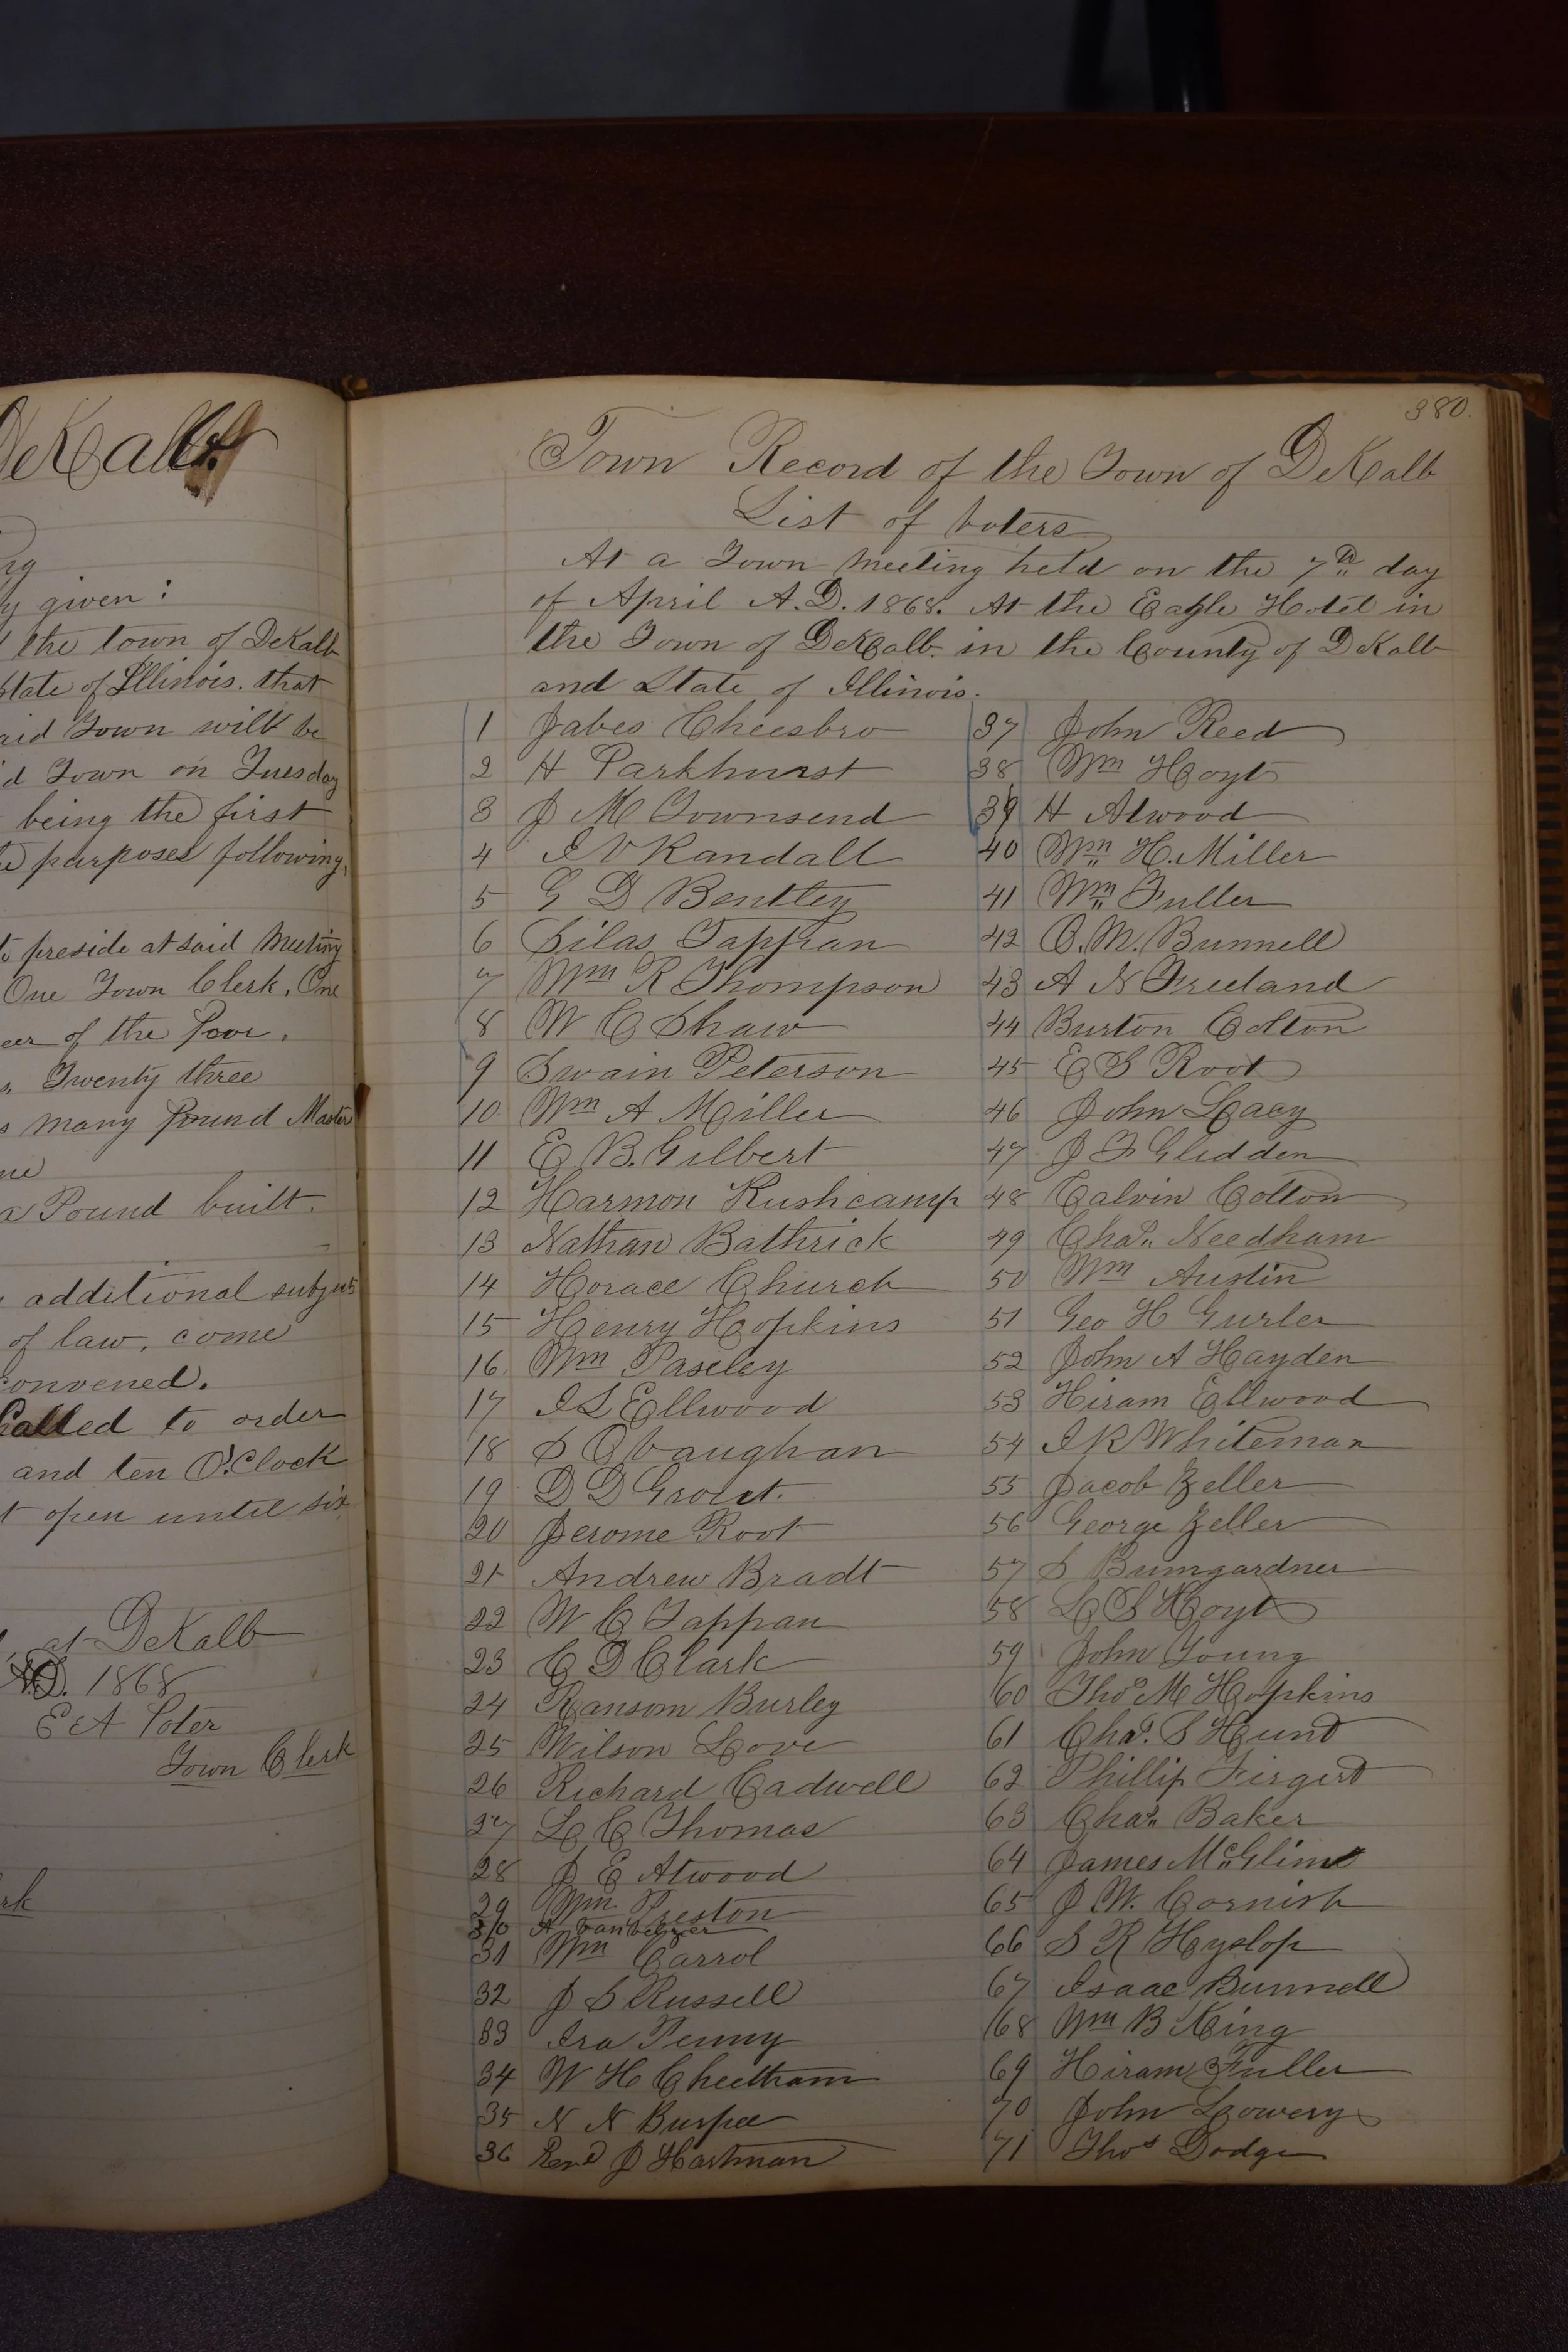 DeKalb.
ng
y given:
the town of DeKalb
State of Illinois. that
aid Town will be
d Town on Tuesday
being the first
purposes following,
to preside at said Meeting
One Town Clerk, One
eer of the Poor.
Twenty three
s many Pound Master
a Pound built.
additional subjects
of law, come
convened.
Called to order
and ten O'Clock
t open until six
at DeKalb
A.D. 1868
E A Poter
Town Clerk
rk
380.
Town Record of the Town of DeKalb
List of voters
At a Town Meeting held on the 7th day
of April A.D. 1868. At the Eagle Hotel in
the Town of DeKalb. in the County of DeKalb
and State of Illinois.
1 Jabes Cheesbro
2 H Parkhurst
3 J M Townsend
4 I V Randall
5 G D Bentley
6 Silas Tappan
7 Wm R Thompson
8 W C Shaw
9 Swain Peterson
10 Wm A Miller
11 E. B. Gilbert
12 Harmon Rushcamp
13 Nathan Bathrick
14 Horace Church
15 Henry Hopkins
16 Wm Paseley
17 I L Ellwood
18 S O Vaughan
19 D D Grout.
20 Jerome Root
21 Andrew Bradt
22 W C Tappan
23 C D Clark
24 Ransom Burley
25 Wilson Love
26 Richard Cadwell
27 L C Thomas
28 J E Atwood
29 Wm Preston
30 A
31 Wm Carrol
32 J S Russell
33 Ira Penny
34 W H Cheetham
35 N N Burpee
36 Revd J Hartman
37 John Reed
38 Wm Hoyt
39 H Atwood
40 Wm H. Miller
41 Wm Fuller
42 O. M. Bunnell
43 A N Freeland
44 Burton Colton
45 E S Root
46 John Lacy
47 J F Glidden
48 Calvin Colton
49 Chas Needham
50 Wm Austin
51 Geo H Gurler
52 John A Hayden
53 Hiram Ellwood
54 I R Whiteman
55 Jacob Zeller
56 George Zeller
57 S Bumgardner
58 L S Hoyt
59 John Young
60 Thos M Hopkins
61 Chas. S Hunt
62 Phillip
63 Chas Baker
64 James McGlime
65 J W. Cornish
66 S R Hyslop
67 Isaac Bunnell
68 Wm B King
69 Hiram Fuller
70 John Lowery
71 Thos Dodge